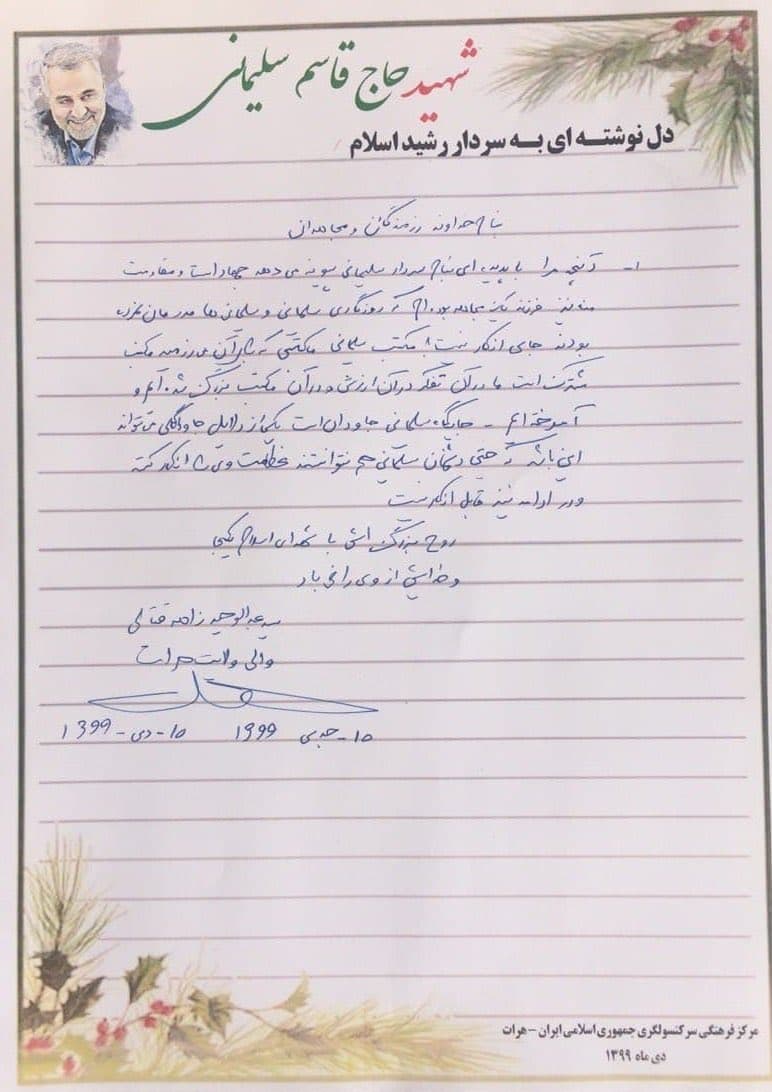 شهید حاج قاسم سلیمانی
دل نوشته ای به سردار رشید اسلام
بنام خداوند رزمندگان و مجاهدان
۱- آنچه مرا با پدیده ای بنام سردار سلیمانی پیوند می دهد جهاد است و مقاومت
من نیز فرزند یک مجاهد بوده ام که روزگاری سلیمانی و سلیمانی ها
بودند جای انکار نیست مکتب سلیمانی با مکتبی که می رزمید مکتب
مشترک است ما در آن تفکر در آن ارزش و در آن مکتب بزرگ شده ایم و
آموخته ایم - جایگاه سلیمانی جاودان است یکی از دلایل جاودانگی می تواند
این باشد که حتی دشمنان سلیمانی هم نتوانستند عظمت وی را انکار کنند
و در ادامه نیز قابل انکار نیست
روح بزرگ اش با شهدای اسلام یکجا
و خدایش از وی راضی باد
سید عبدالوحید زاده قتالی
والی ولایت هرات
۱۵ - جدی ۱۳۹۹ ۱۵ - دی - ۱۳۹۹
مرکز فرهنگی سرکنسولگری جمهوری اسلامی ایران - هرات
دی ماه ۱۳۹۹